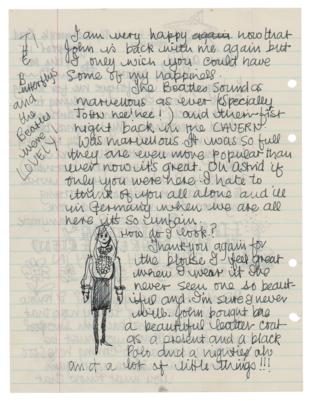 I am very happy again now that
John is back with me again but
I only wish you could have
some of my happiness.
The Beatles sound as
marvellous as ever (specially
John hee hee!) and their first
night back in the CAVERN
was marvellous it was so full
they are even more popular than
ever now its great. Oh Astrid if
only you were here I hate to
think of you all alone and ill
in Germany when we are all
here its so unfair.
How do I look?
Thankyou again for
the blouse I feel great
when I wear it Ive
never seen one so beaut-
iful and I'm sure I never
will. John bought me
a beautiful leather coat
as a present and a black
Polo and a nightie also
and a lot of little things!!!
THE
and
the
Beatles
were
LOVELY